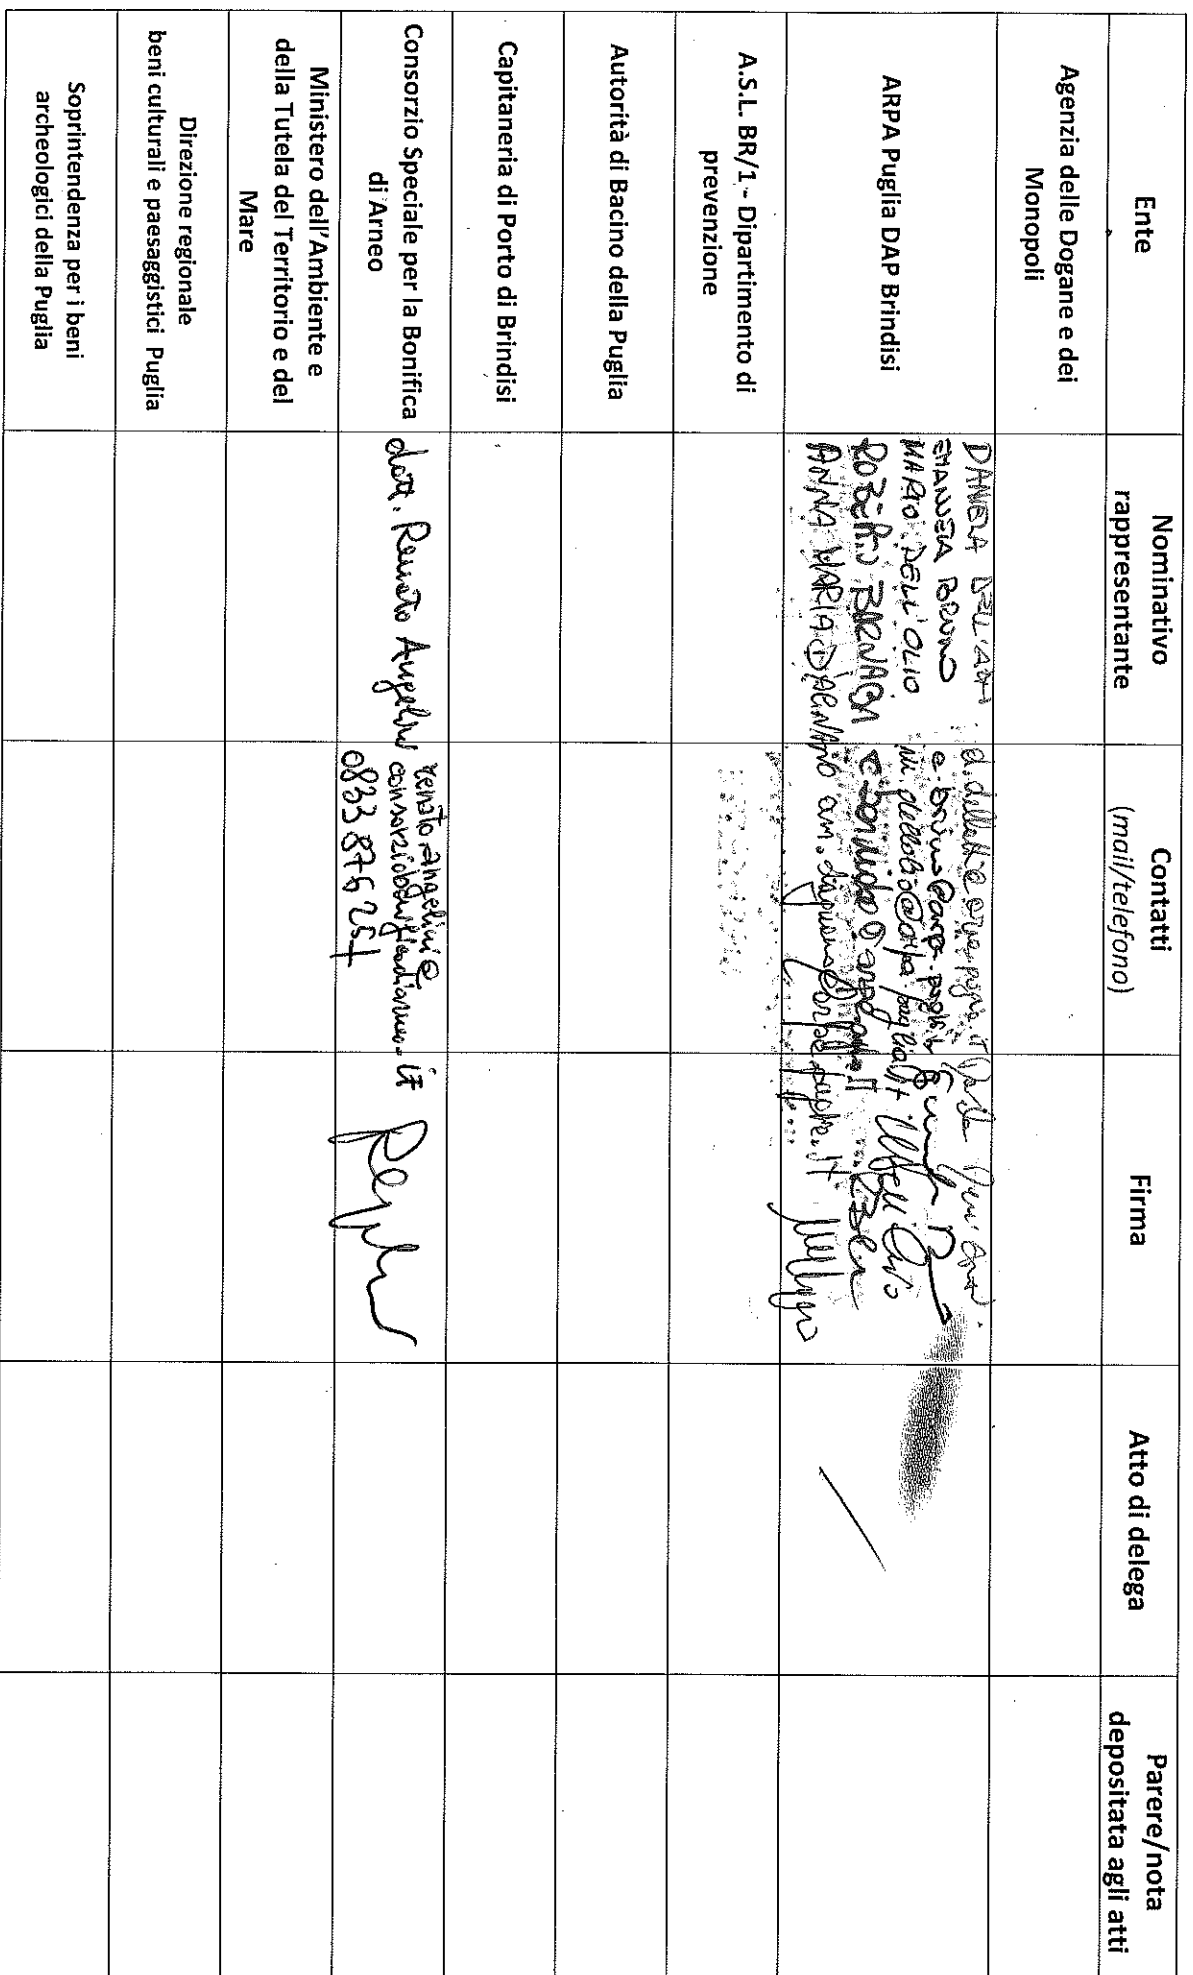 Ente
Nominativo
rappresentante
Contatti
(mail/telefono)
Firma
Atto di delega
Parere/nota
depositata agli atti
Agenzia delle Dogane e dei
Monopoli
ARPA Puglia DAP Brindisi
DANIELA DELL'
EMANUELA BRUNO
MARIO DELL'OLIO
ROBERTO BARNABA
ANNA MARIA D'AGNANO
e.bruno@arpa.puglia.it
m.dellolio@arpa.puglia.it
A.S.L. BR/1 - Dipartimento di
prevenzione
Autorità di Bacino della Puglia
Capitaneria di Porto di Brindisi
Consorzio Speciale per la Bonifica
di Arneo
dott. Renato Angelini
renato.angelini@
consorziobonificadiarneo.it
Ministero dell'Ambiente e
della Tutela del Territorio e del
Mare
Direzione regionale
beni culturali e paesaggistici Puglia
Soprintendenza per i beni
archeologici della Puglia